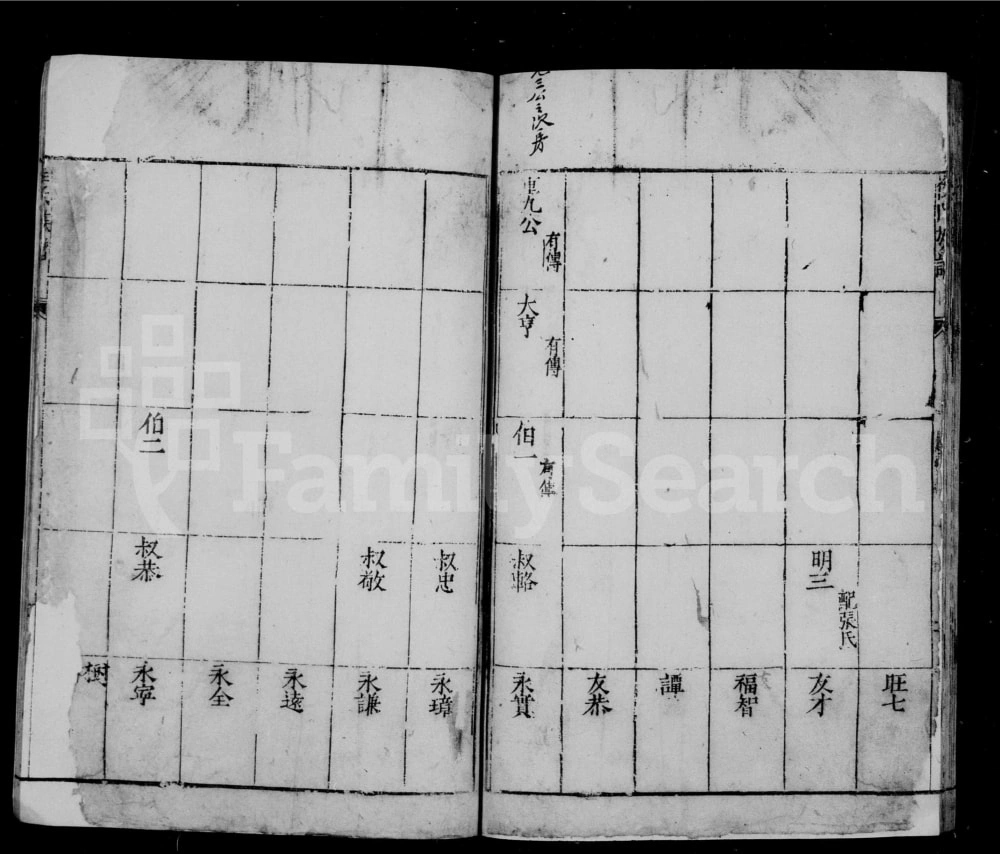 三公之次房
旺七
明三
配張氏
友才
福智
譚
友恭
九公
有傳
大亨
有傳
伯一
有傳
叔輅
永實
叔忠
永璋
叔敬
永謙
永遠
永全
伯二
叔恭
永寧
樹
FamilySearch